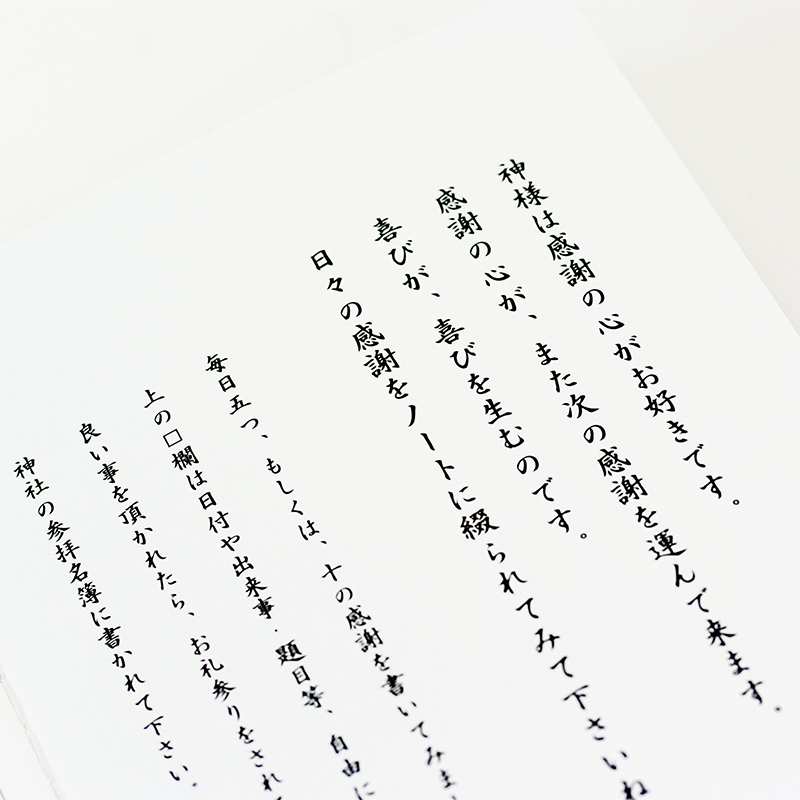 神様は感謝の心がお好きです。
感謝の心が、また次の感謝を運んで来ます。
喜びが、喜びを生むのです。
日々の感謝をノートに綴られてみて下さいね
毎日五つ、もしくは、十の感謝を書いてみま
上の□欄は日付や出来事・題目等、自由に
良い事を頂かれたら、お礼参りをされ
神社の参拝名簿に書かれて下さい。